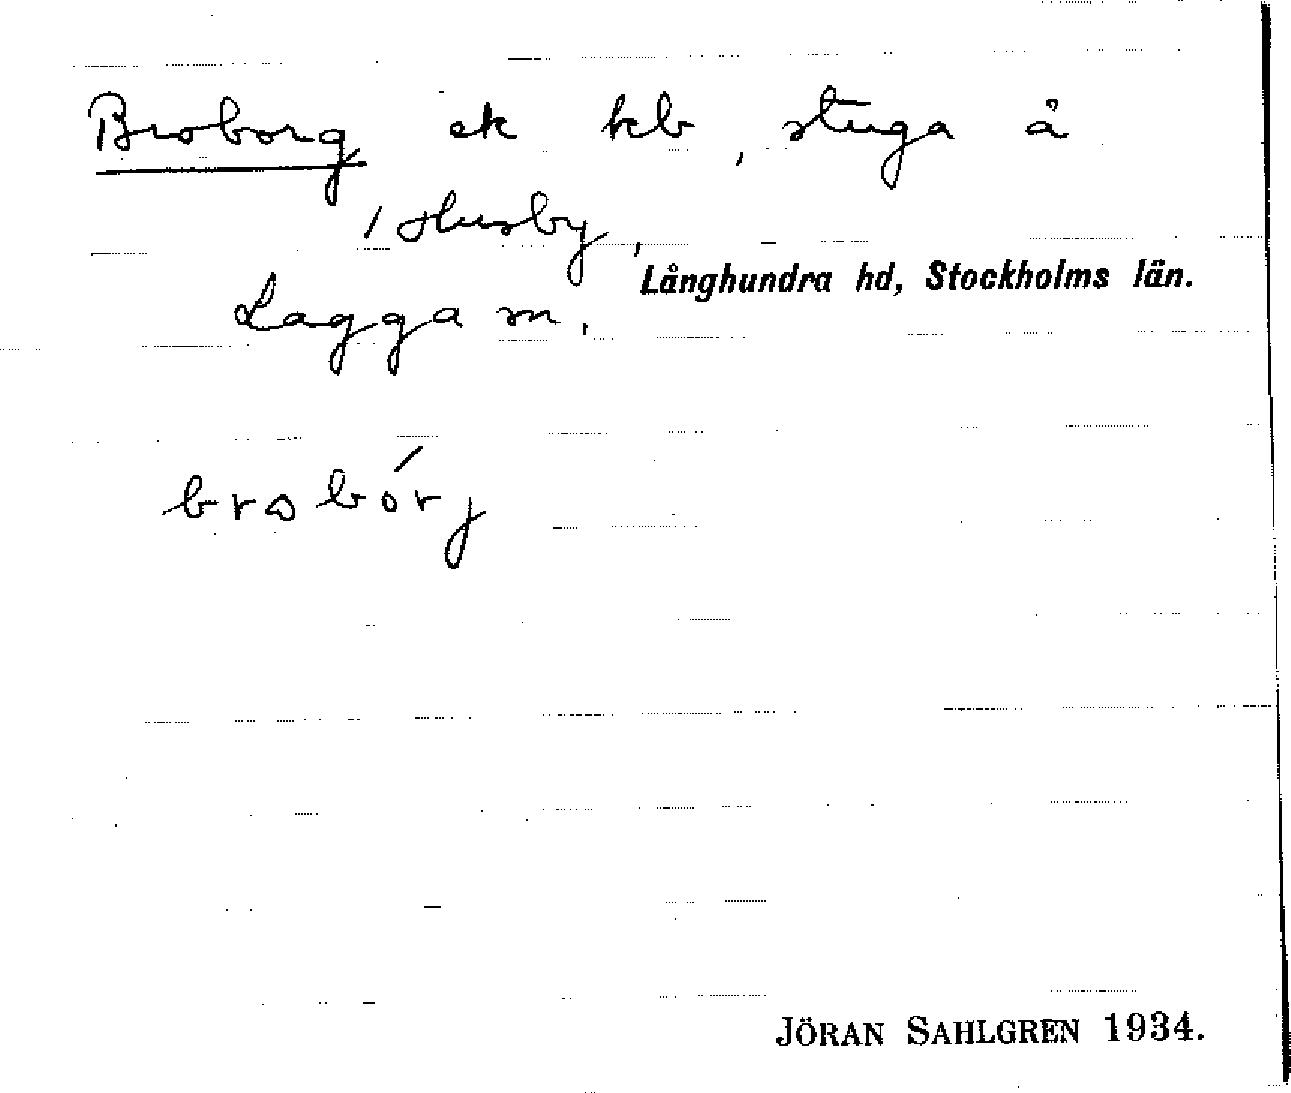 Broborg ek kb, stuga å
1 Husby,
Långhundra hd, Stockholms län.
Lagga sn.
brobórj
JÖRAN SAHLGREN 1934.